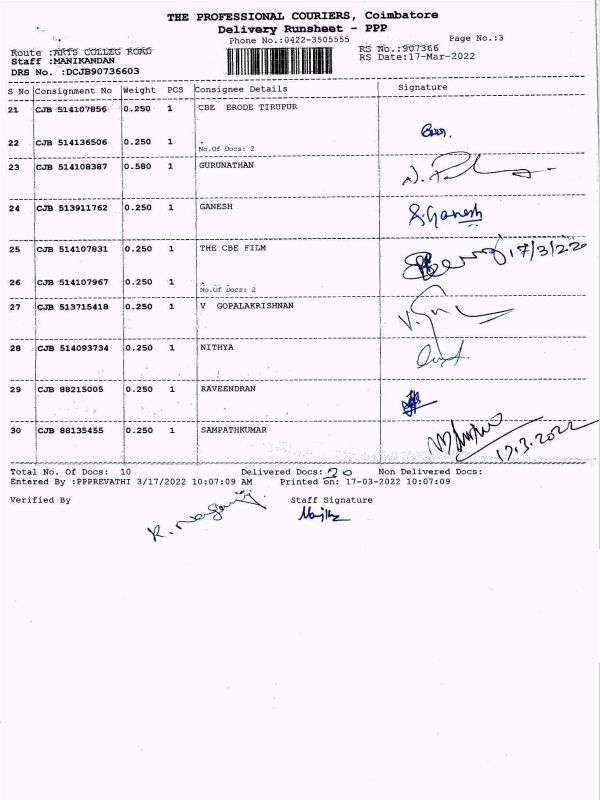 THE PROFESSIONAL COURIERS, Coimbatore
Delivery Runsheet - PPP
Phone No.:0422-3505555 Page No.:3
Route :ARTS COLLEG ROAD RS No.:907366
Staff :MANIKANDAN RS Date:17-Mar-2022
DRS No. :DCJB90736603
S No Consignment No Weight PCS Consignee Details Signature
21 CJB 514107856 0.250 1 CBE ERODE TIRUPUR
22 CJB 514136506 0.250 1
No.Of Docs: 2
23 CJB 514108387 0.580 1 GURUNATHAN
24 CJB 513911762 0.250 1 GANESH S.Ganesh
25 CJB 514107831 0.250 1 THE CBE FILM 17/3/22
26 CJB 514107967 0.250 1
No.Of Docs: 2
27 CJB 513715418 0.250 1 V GOPALAKRISHNAN
28 CJB 514093734 0.250 1 NITHYA
29 CJB 88215005 0.250 1 RAVEENDRAN
30 CJB 88135455 0.250 1 SAMPATHKUMAR 17.3.2022
Total No. Of Docs: 10 Delivered Docs: Non Delivered Docs:
Entered By :PPPREVATHI 3/17/2022 10:07:09 AM Printed on: 17-03-2022 10:07:09
Verified By Staff Signature